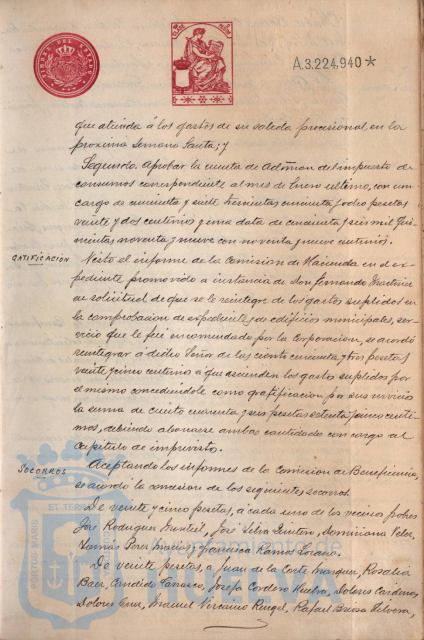 TIMBRE DEL ESTADO
A.3.224,940*
que atienda á los gastos de su salida procesional, en la
próxima Semana Santa; y
Segundo. Aprobar la cuenta de Admon del impuesto de
consumos correspondiente al mes de Enero último, con un
cargo de cincuenta y siete trescientas cincuenta y ocho pesetas
veinte y dos centimos y una data de cincuenta y seis mil qui-
nientas noventa y nueve con noventa y nueve centimos.
GATIFICACIÓN
Visto el informe de la Comision de Hacienda en el ex-
pediente promovido a instancia de Don Fernando Martinez
en solicitud de que se le reintegre de los gastos suplidos en
la comprobacion de expedientes de edificios municipales, ser-
vicio que le fué encomendado por la Corporacion, se acordó
reintegrar á dicho Señor de las ciento cincuenta y tres pesetas
veinte y cinco centimos á que ascienden los gastos suplidos por
el mismo concediendole como gratificacion por sus servicios
la suma de ciento cuarenta y seis pesetas setenta y cinco centi-
mos, debiendo abonarse ambas cantidades con cargo al
Capítulo de imprevistos.
SOCORROS
Aceptando los informes de la Comision de Beneficencia,
se acordó la concesion de los siguientes socorros.
De veinte y cinco pesetas, á cada uno de los vecinos pobres
José Rodriguez, José Silva Quintero, Dominiana Velez,
Tomas Perez Macias, Francisca Ramos Lozano.
De veinte pesetas, a Juan de la Corte Marquez, Rosalia
Baez, Candido Carrasco, Josefa Cordero Huelva, Dolores Cardenas,
Dolores Cruz, Manuel Vizcaino Rengel, Rafael
PORTUS MARIS
ET TERRAE
Ayuntamiento
HUELVA